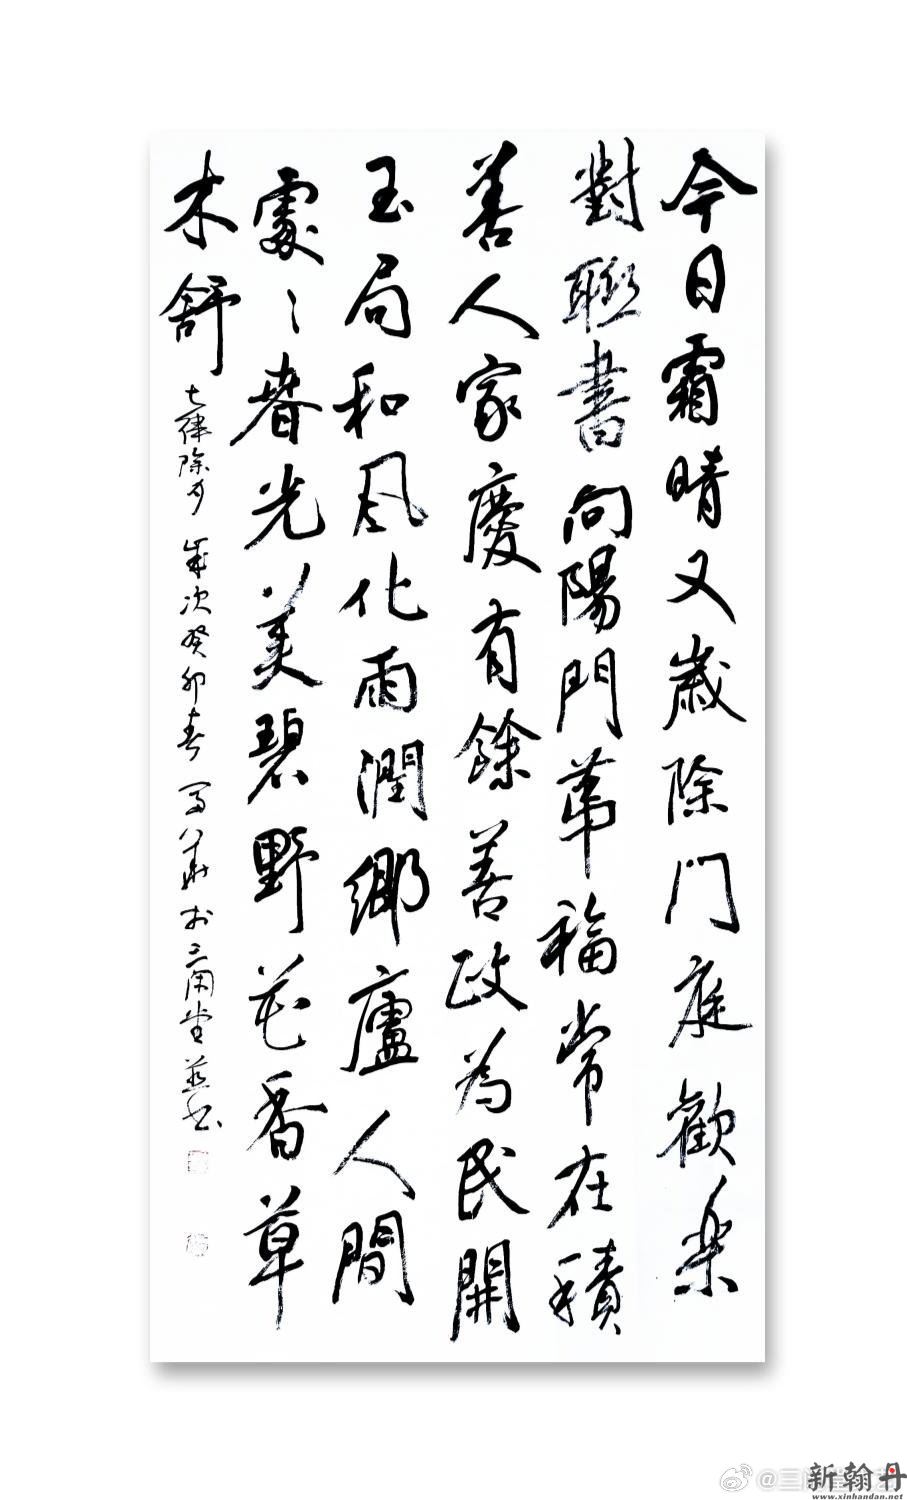 今日霜晴又歲除門庭歡樂
對聯書向陽門苐福常在積
善人家慶有餘善政為民開
玉局和風化雨潤鄉廬人間
處〻春光美碧野花香草
木舒 七律除夕 歲次癸卯春 於三闲堂
新翰丹
www.xinhandan.net